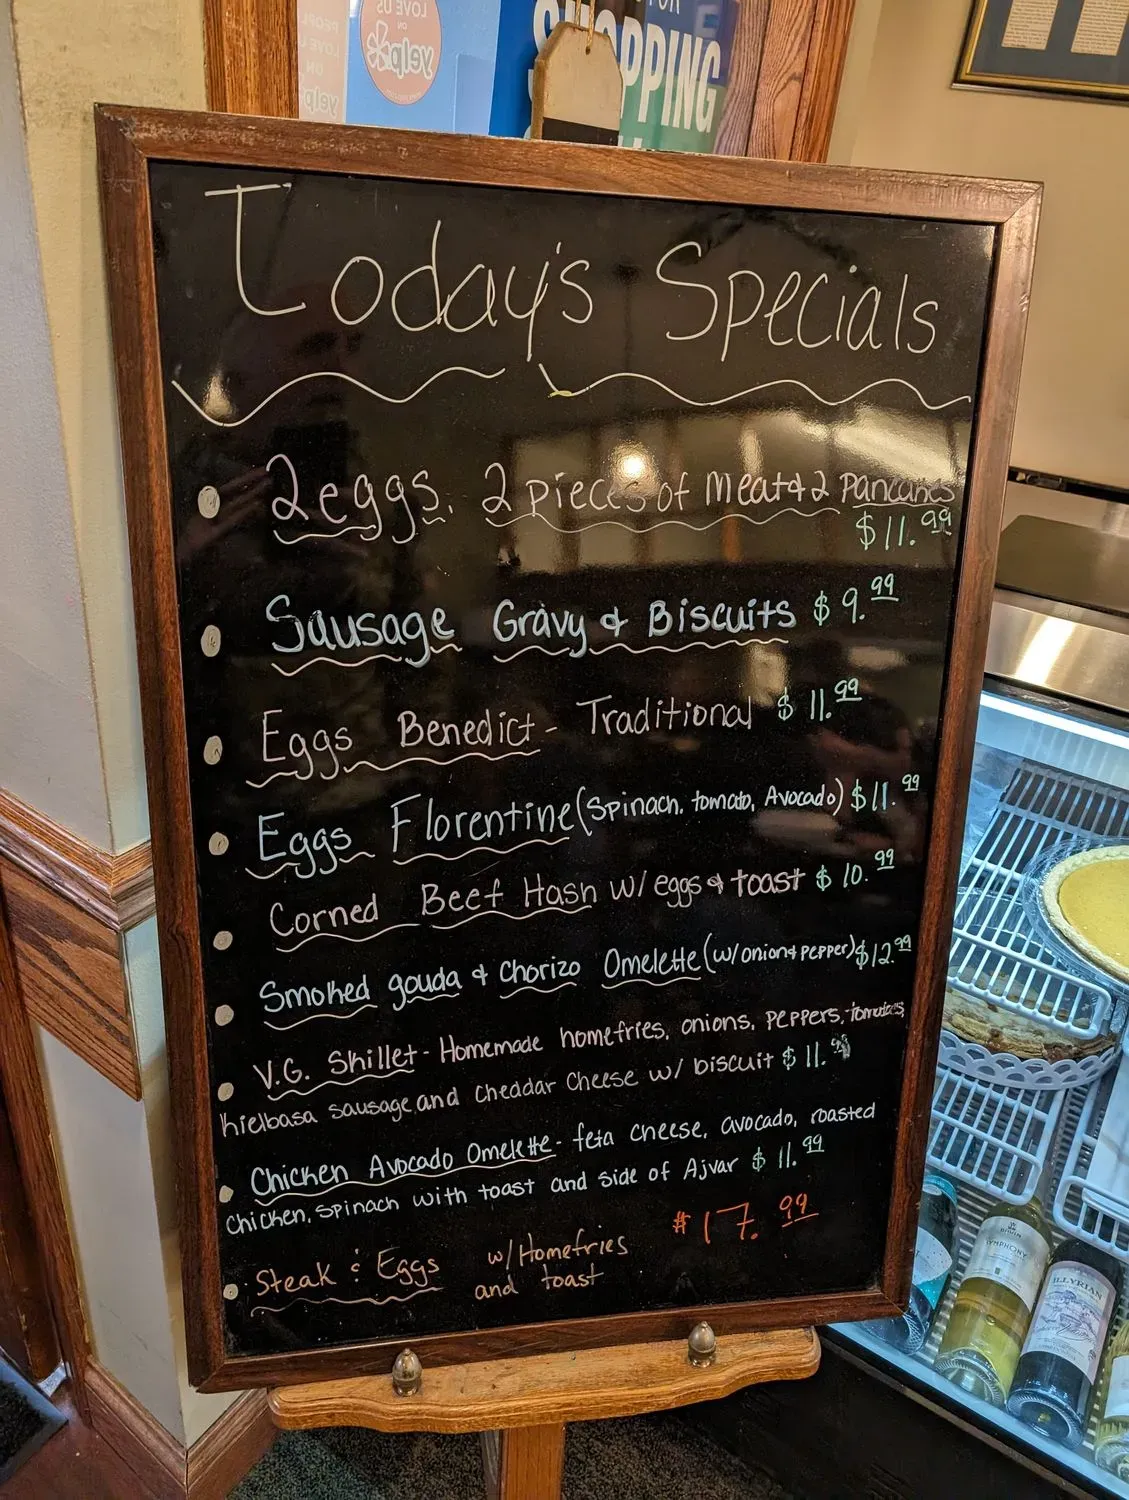 LOVE US
ON
yelp
PEOPL
LOVE U
ON
yelp
SHOPPING
Today's Specials
2 eggs, 2 pieces of meat & 2 pancakes
$11.99
Sausage Gravy & Biscuits $9.99
Eggs Benedict - Traditional $11.99
Eggs Florentine (Spinach, tomato, Avocado) $11.99
Corned Beef Hash w/ eggs & toast $10.99
Smoked gouda & Chorizo Omelette (w/ onion & pepper) $12.99
V.G. Skillet - Homemade homefries, onions, peppers, tomatoes,
kielbasa sausage, and cheddar cheese w/ biscuit $11.99
Chicken Avocado Omelette - feta cheese, avocado, roasted
chicken, spinach with toast and side of Ajvar $11.99
Steak & Eggs w/ Homefries #17.99
and toast
SYMPHONY
ILLYRIAN